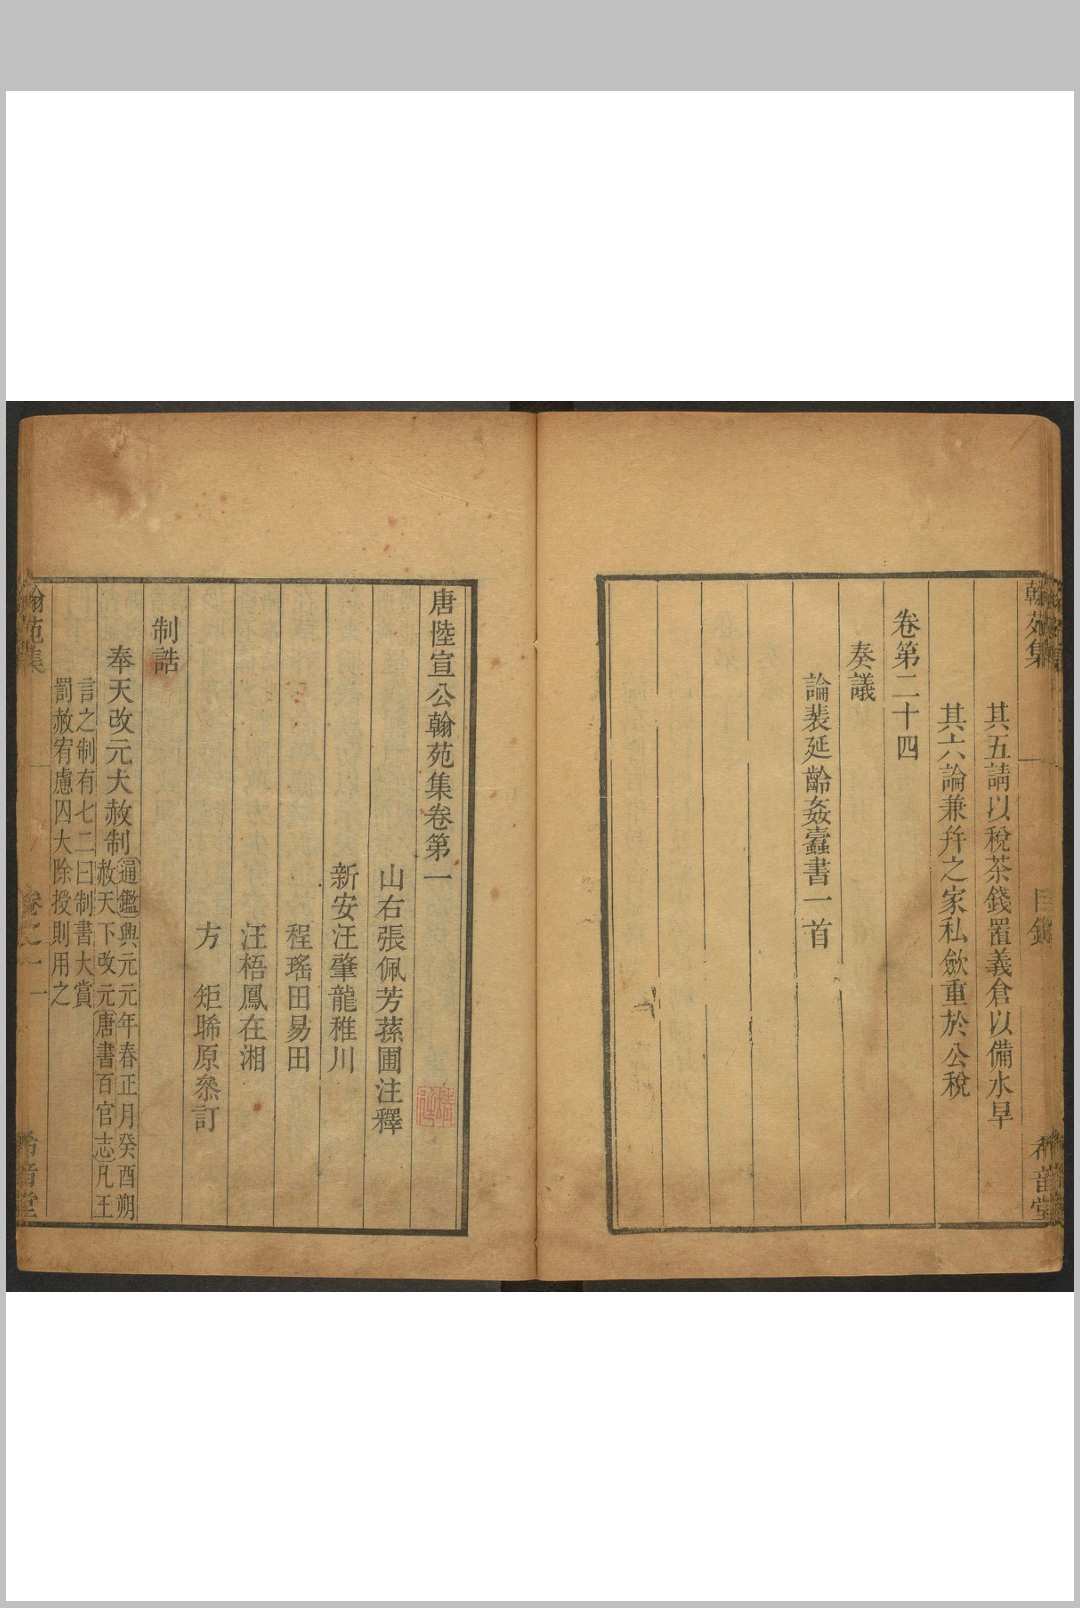 其五請以稅茶錢置義倉以備水旱
其六論兼并之家私斂重於公稅
卷第二十四
奏議
論裴延齡姦蠹書一首
翰苑集
目錄
希音堂
唐陸宣公翰苑集卷第一
山右張佩芳蓀圃注釋
新安汪肇龍稚川
程瑤田易田
汪梧鳳在湘
方矩晞原叅訂
制誥
奉天改元大赦制
通鑑興元元年春正月癸酉朔
赦天下改元唐書百官志凡王
言之制有七二曰制書大賞
罰赦宥慮囚大除授則用之
翰苑集
卷之一
一
希音堂